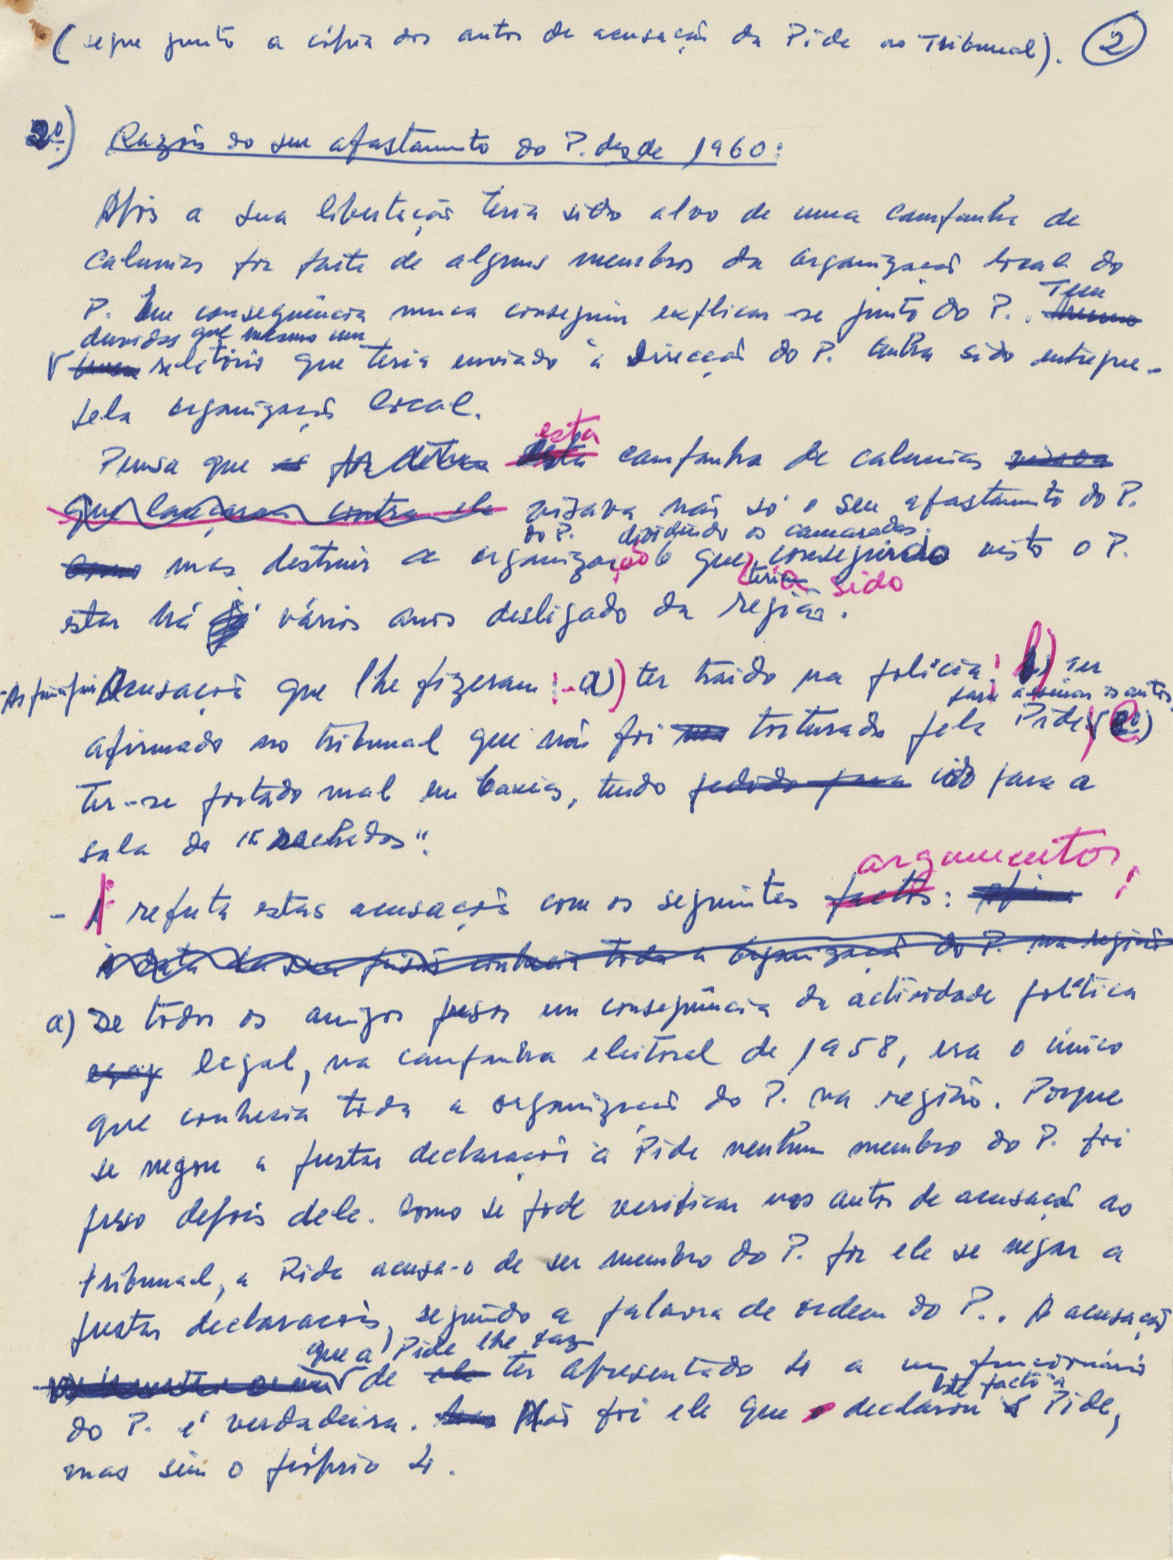 (segue junto a cópia dos autos de acusação da Pide ao Tribunal). 2
2º) Razões do seu afastamento do P. desde 1960:
Após a sua libertação teria sido alvo de uma campanha de
calunias por parte de alguns membros da organização local do
P. Em consequência nunca conseguiu explicar-se junto do P.. Tem
duvidas que mesmo um
relatório que teria enviado à Direcção do P. tenha sido entregue
pela organização local.
Pensa que esta campanha de calunias
visava não só o seu afastamento do P.
do P. dividindo os camaradas.
mas destruir a organização o que teria sido conseguido visto o P.
estar há vários anos desligado da região.
Acusações que lhe fizeram: - a) ter traido na policia; b) ter
para assinar os autos
afirmado no tribunal que não foi torturado pela Pide; c)
Ter-se portado mal em Caxias, tendo ido para a
sala de "rachados".
argumentos:
- refuta estas acusações com os seguintes
a) De todos os amigos presos em consequência da actividade política
legal, na campanha eleitoral de 1958, era o único
que conhecia toda a organização do P. na região. Porque
se negou a prestar declarações à Pide nenhum membro do P. foi
preso depois dele. Como se pode verificar nos autos de acusação ao
tribunal, a Pide acusa-o de ser membro do P. por ele se negar a
prestar declarações, segundo a palavra de ordem do P.. A acusação
que a Pide lhe faz
de ter apresentado 4 a um funcionário
do P. é verdadeira. Não foi ele que declarou este facto à Pide,
mas sim o próprio 4.